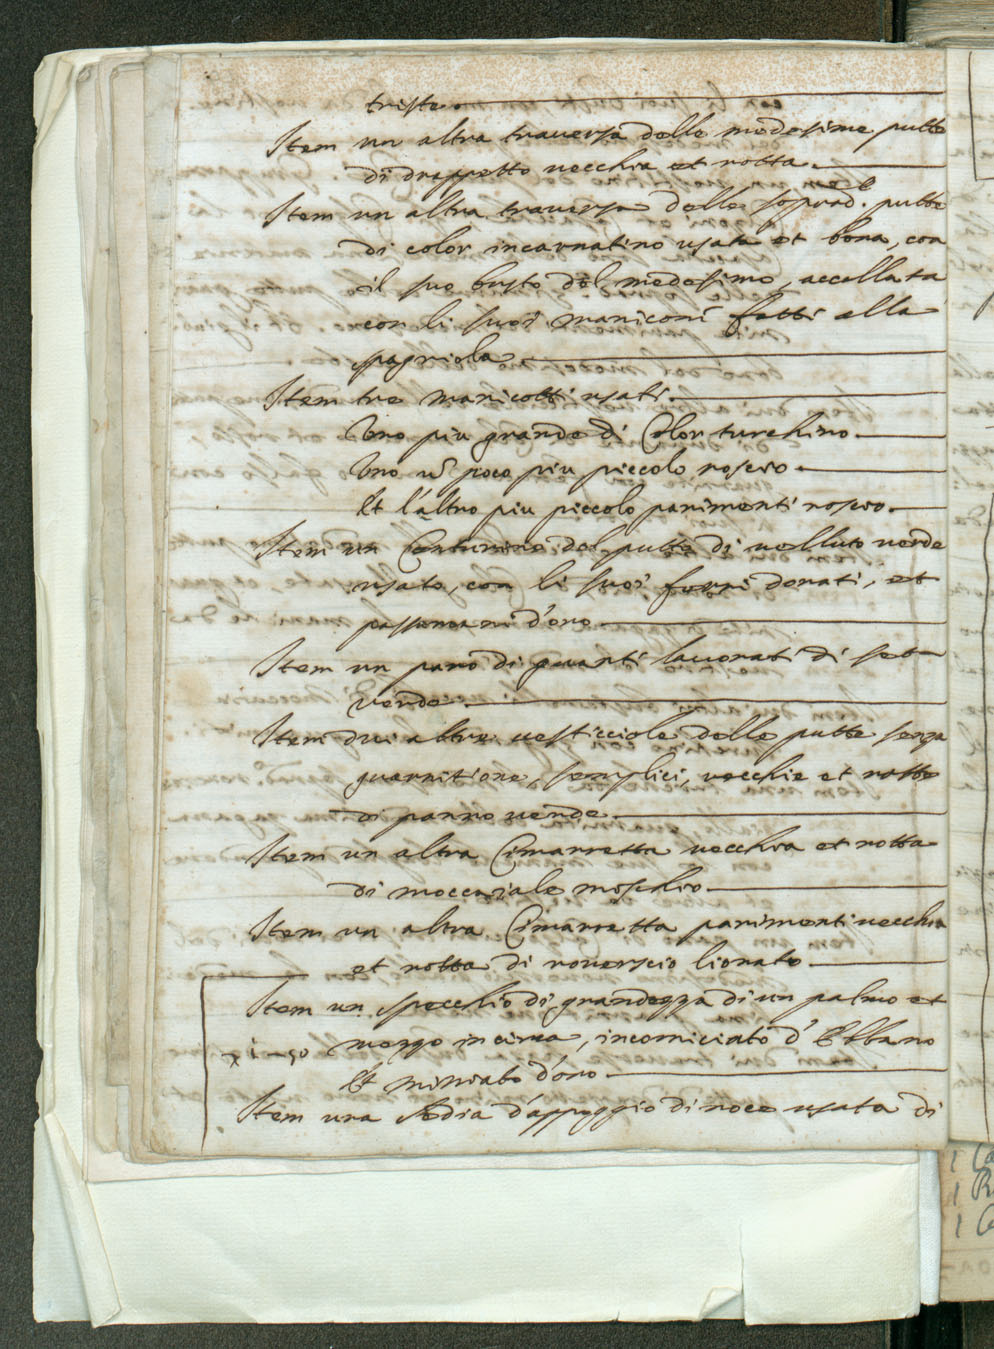 triste.
Item un altra traversa delle medesime putte
di drappetto vecchia et rotta.
Item un altra traversa delle soprad.e putte
di color incarnatino usata et bona, con
il suo busto del medesimo, accellata
con li suoi maniconi fatti alla
spagniola
Item tre manicotti usati.
Uno piu grande di Color turchino.
Uno ũ poco piu piccolo roscio.
Et l'altro piu piccolo parimenti roscio.
Item un Centurino del putto di velluto verde
usato, con li suoi ferri dorati, et
passamani d'oro.
Item un paro di guanti lavorati di seta
verde.
Item dui altre vesticciole delle putte senza
guarnitione, semplici, vecchie et rotte
di panno verde.
Item un altra Cimarretta vecchia et rotta
di moccaiale mischio
Item un altra Cimarretta parimenti vecchia
et rotta di roverscio lionato
Item un specchio di grandezza di un palmo et
mezzo in cima, incorniciato d'Ebbano
Et miniato d'oro
Item una Sedia d'appoggio di noce usata di